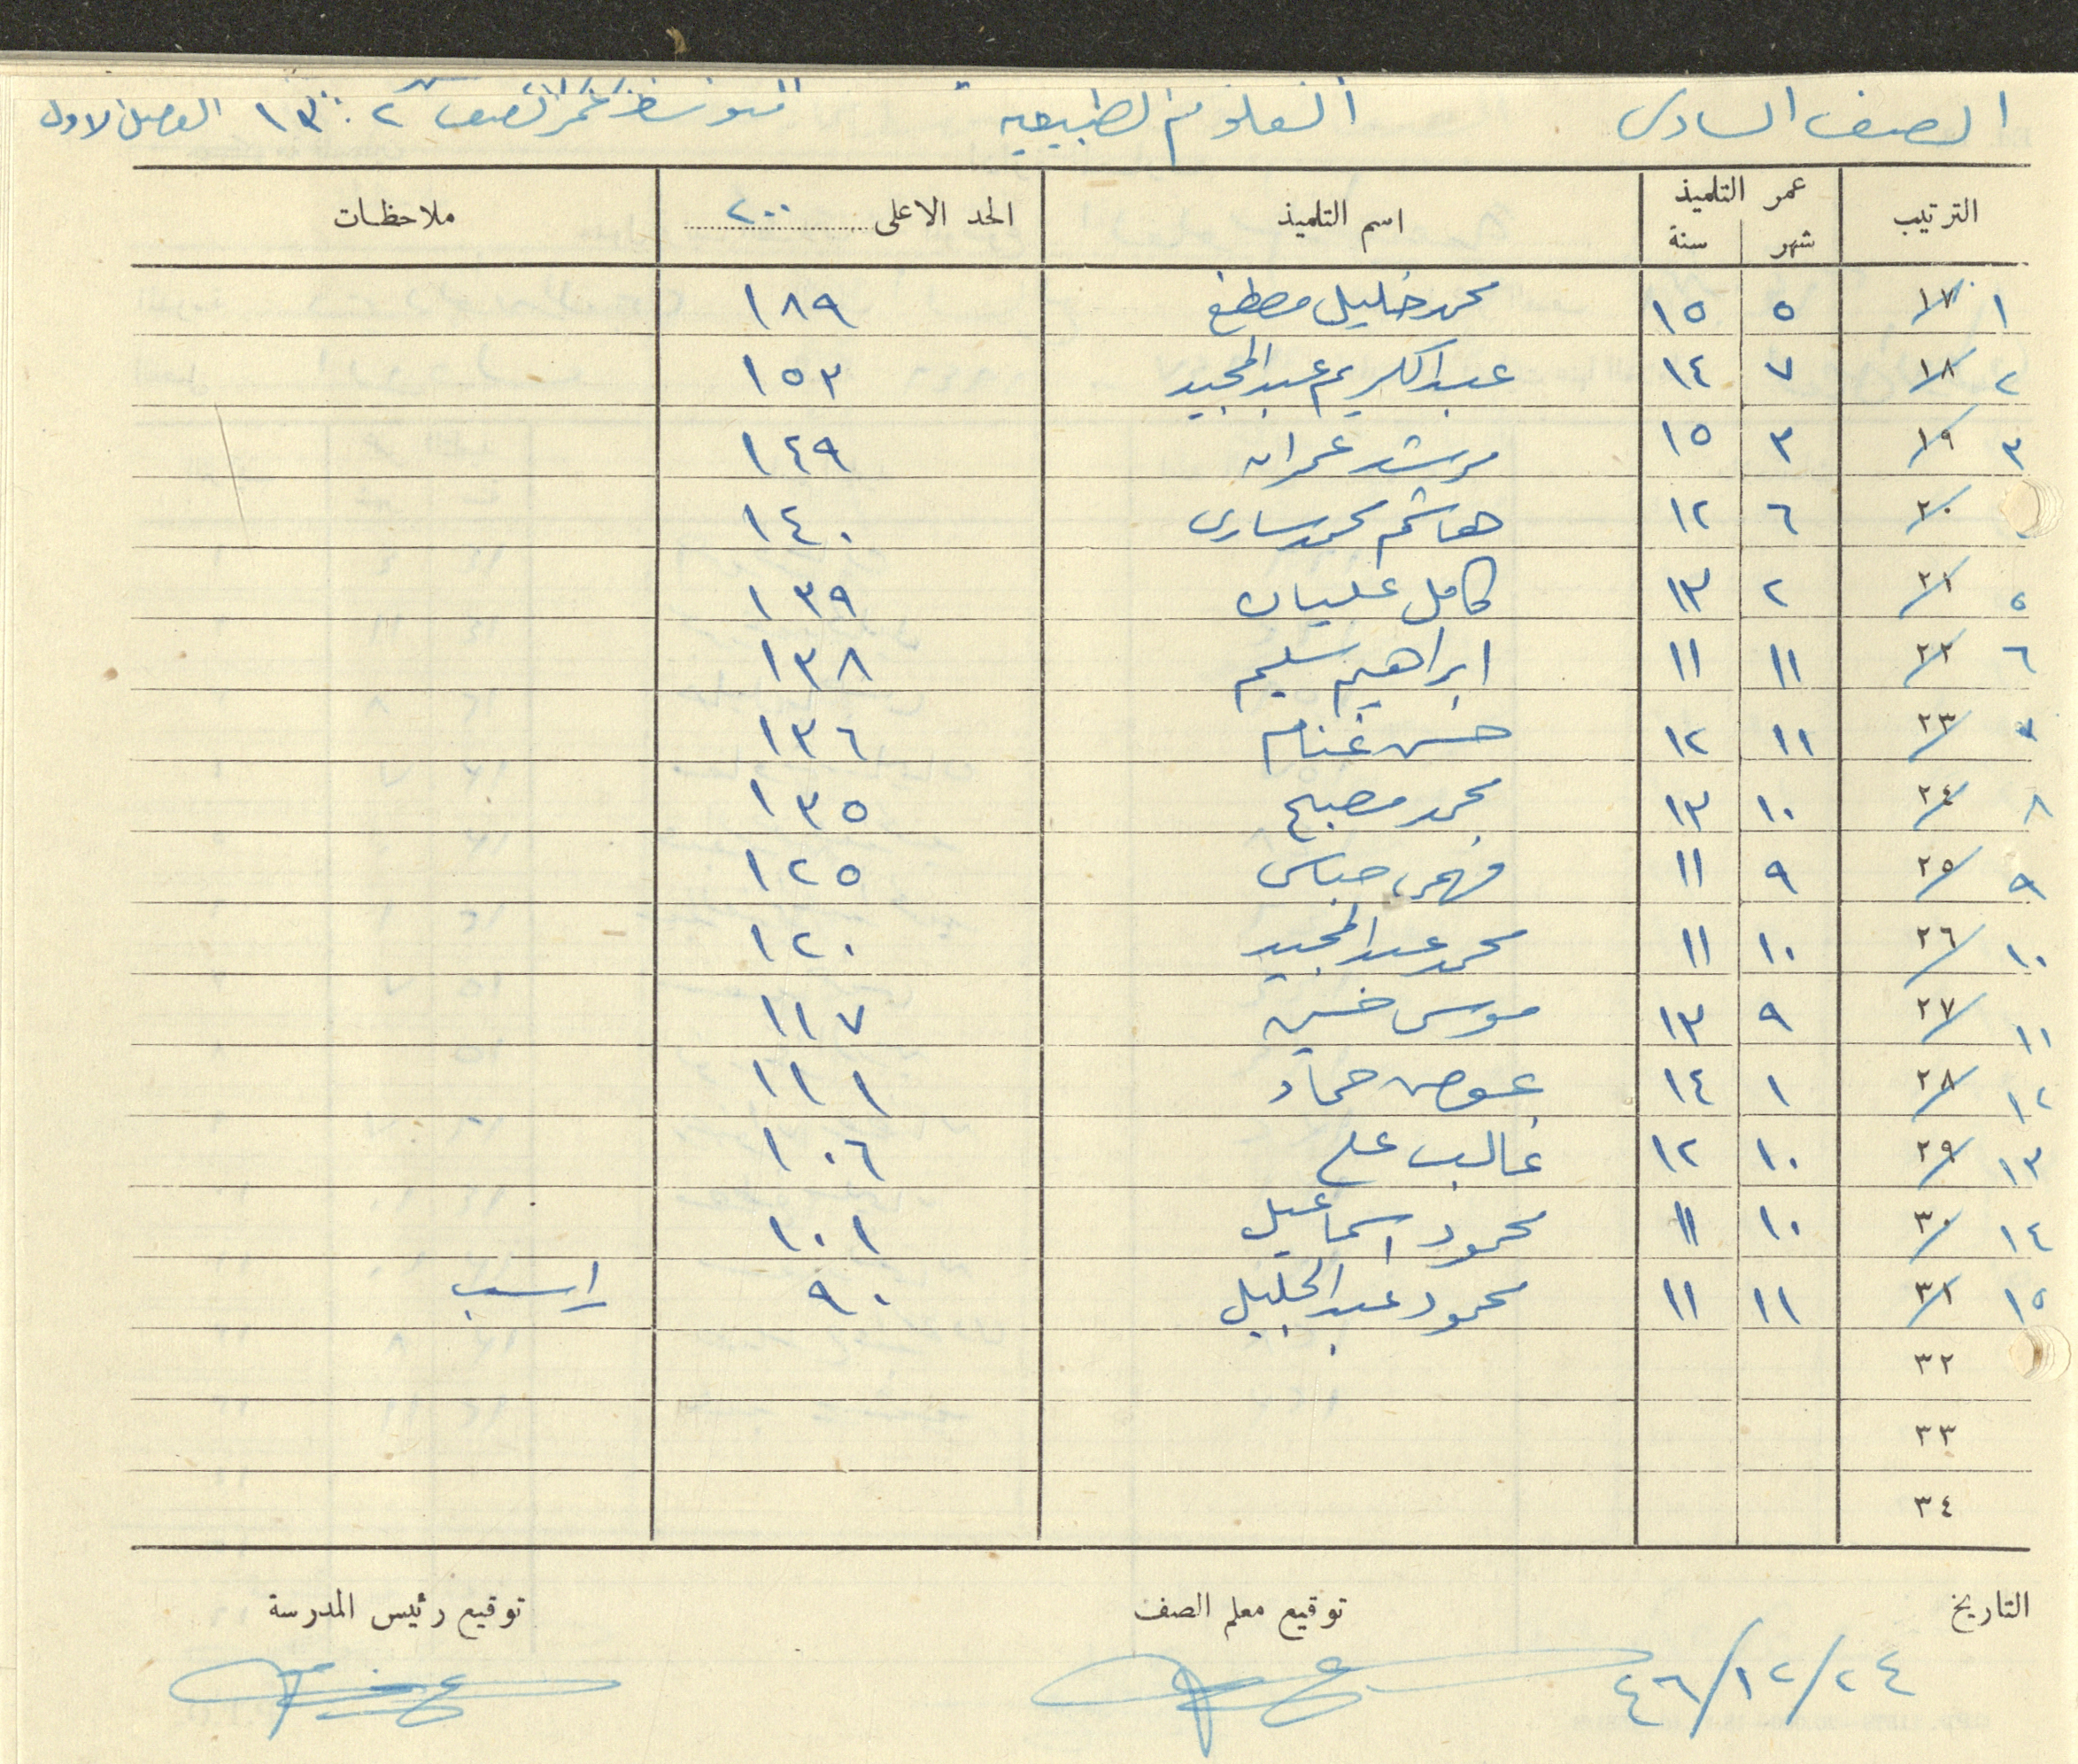 الصف السادس العلوم الطبيعية المتوسط عمر الصف ٢ : ١٣ الفصل الاول
الترتيب عمر التلميذ شهر سنة اسم التلميذ الحد الاعلى ٢٠٠ ملاحظات
١ ١٧ ٥ ١٥ محمد خليل مصطفى ١٨٩
٢ ١٨ ٧ ١٤ عبد الكريم عبد المجيد ١٥٣
٣ ١٩ ٣ ١٥ مرشد عمران ١٤٩
٢٠ ٦ ١٢ هاشم محمد ساري ١٤٠
٥ ٢١ ٢ ١٣ كامل عليان ١٣٩
٦ ٢٢ ١١ ١١ ابراهيم سليم ١٣٨
٧ ٢٣ ١١ ١٢ حسن غنام ١٣٦
٨ ٢٤ ١٠ ١٣ محمد مصبح ١٣٥
٩ ٢٥ ٩ ١١ عباس ١٢٥
١٠ ٢٦ ١٠ ١١ محمد عبد المجيد ١٢٠
١١ ٢٧ ٩ ١٣ موسى حسين ١١٧
١٢ ٢٨ ١ ١٤ عوض حماد ١١١
١٣ ٢٩ ١٠ ١٢ غالب علي ١٠٦
١٤ ٣٠ ١٠ ١١ محمود اسماعيل ١٠١
١٥ ٣١ ١١ ١١ محمود عبد الجليل ٩٠ راسب
٣٢
٣٣
٣٤
التاريخ توقيع معلم الصف توقيع رئيس المدرسة
٢٤/١٢/٤٦